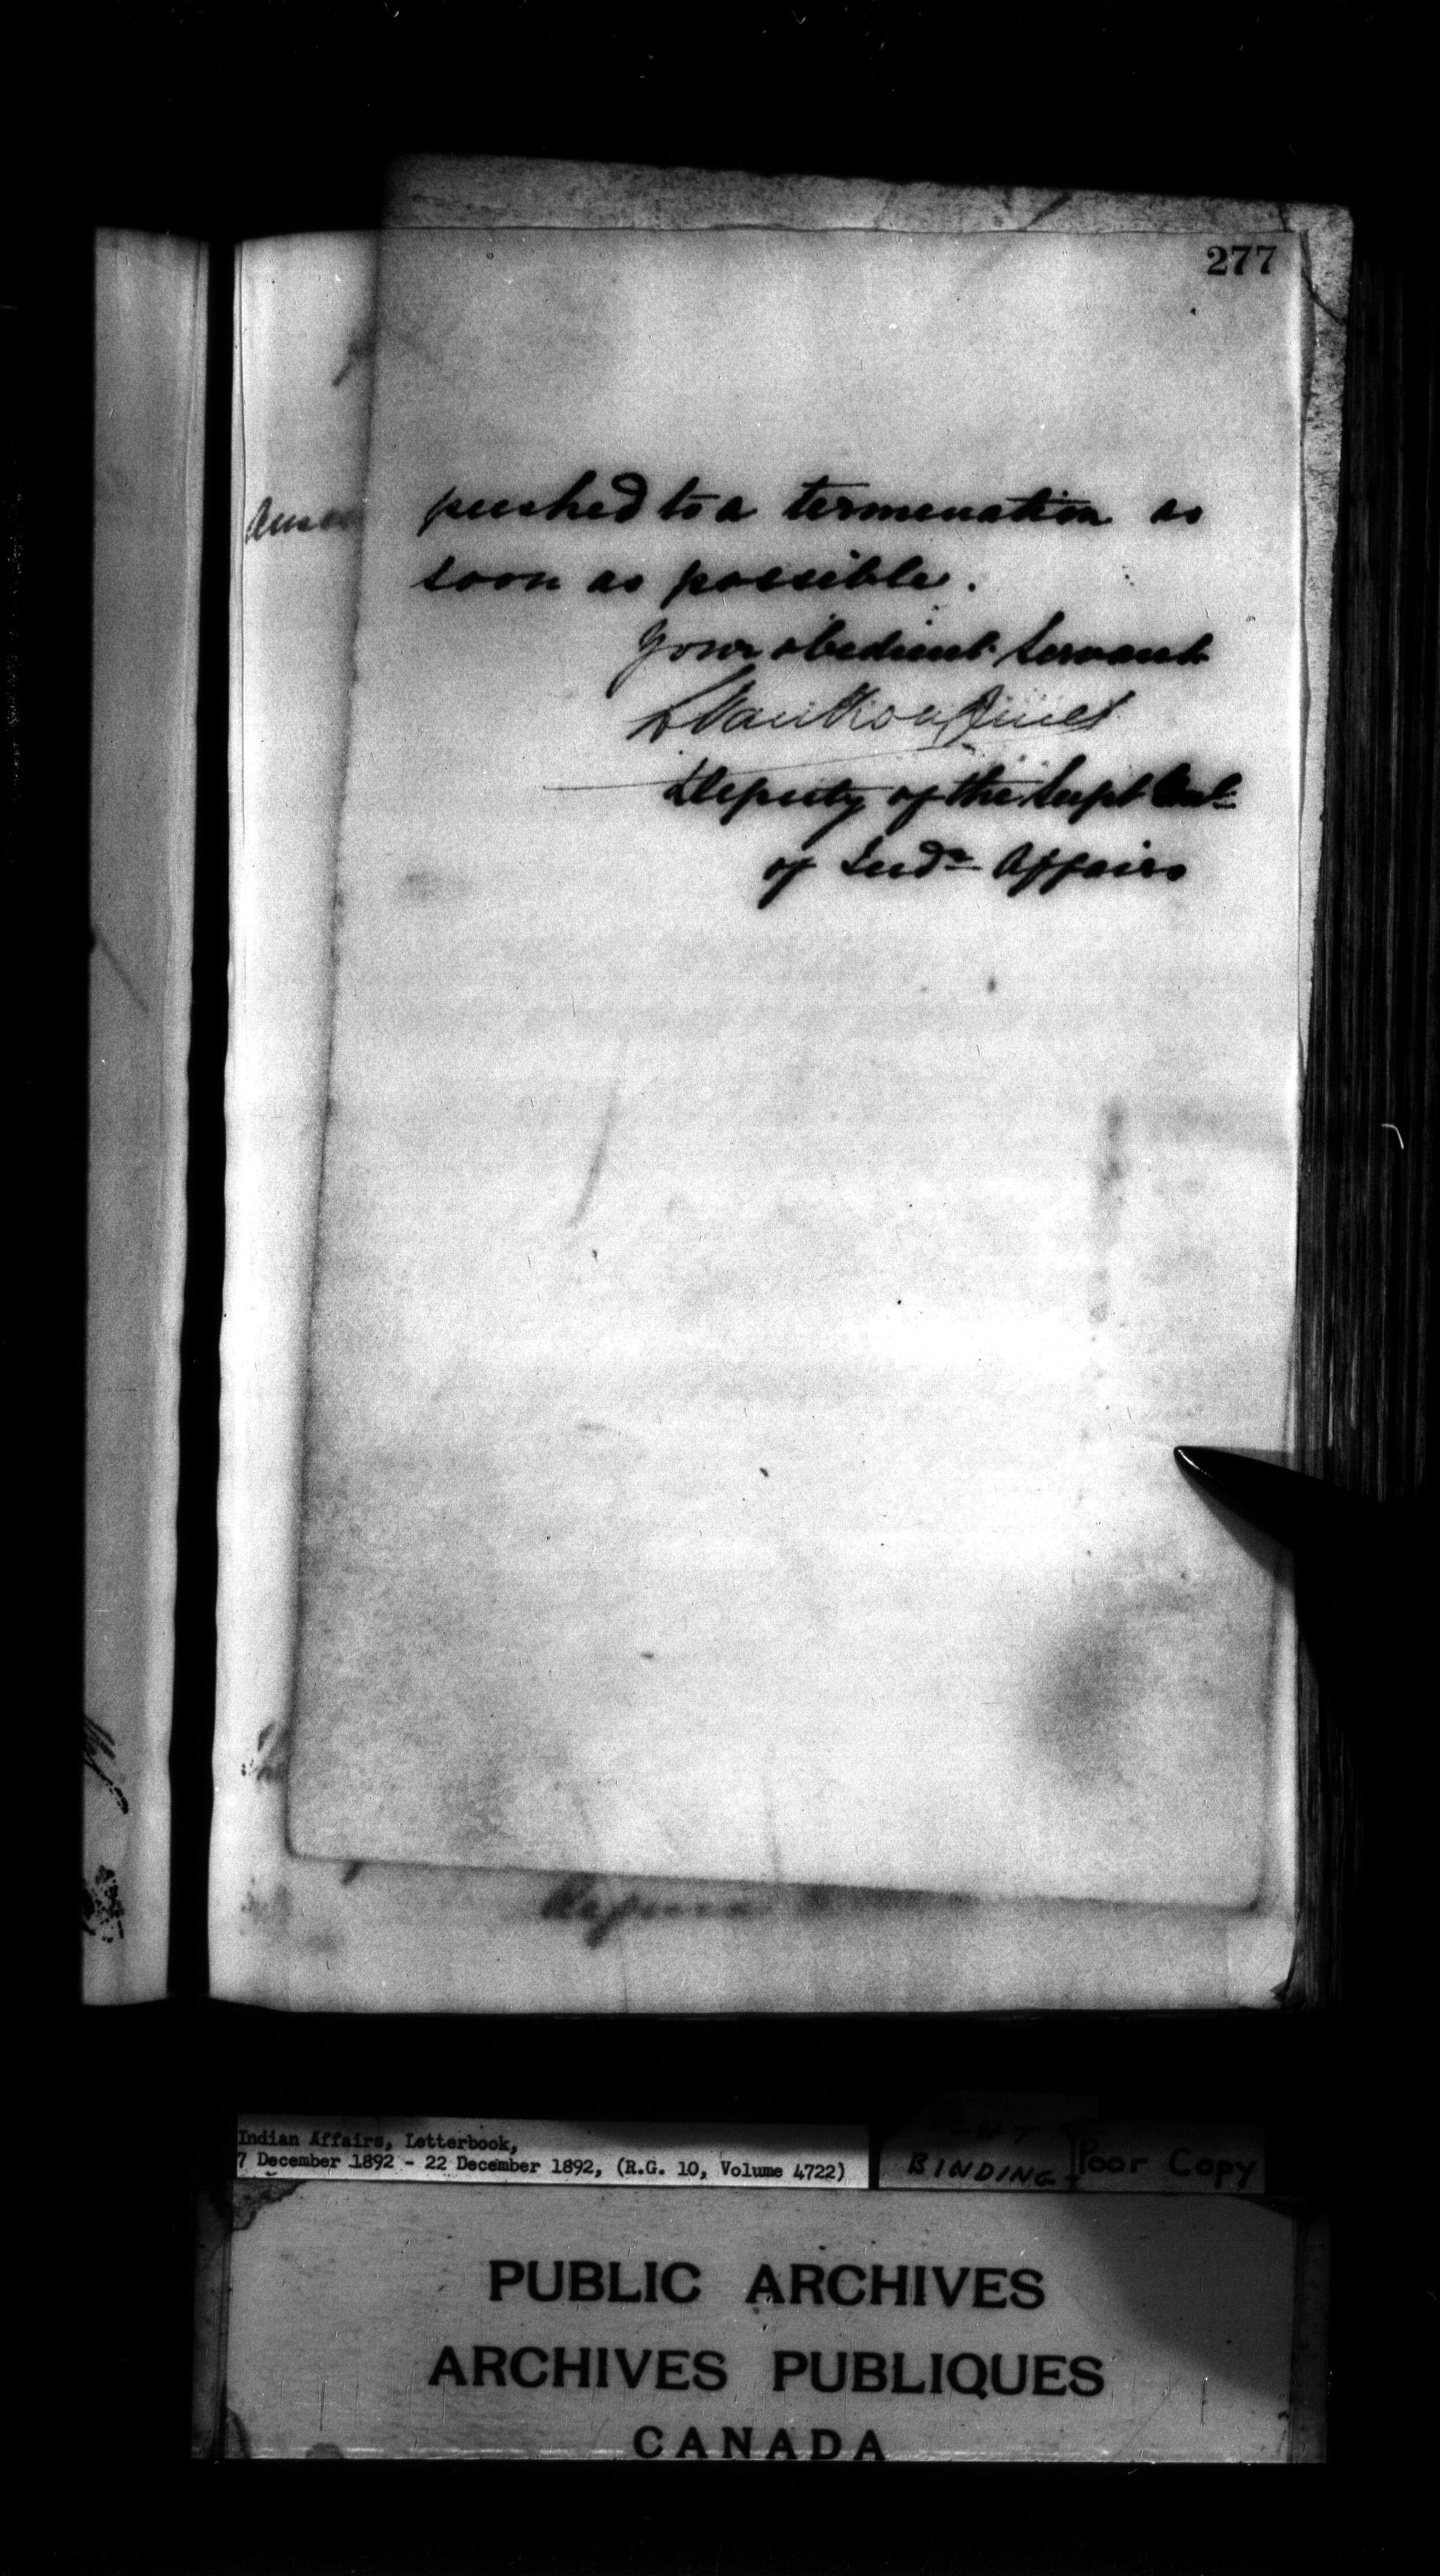 277
pushed to a termination as
soon as possible.
Your obedient Servant
L VanKoughnet
Deputy of the Supt Genl
of Indn Affairs
Indian Affairs, Letterbook,
7 December 1892 - 22 December 1892, (R.G. 10, Volume 4722)
BINDING
Poor Copy
PUBLIC ARCHIVES
ARCHIVES PUBLIQUES
CANADA